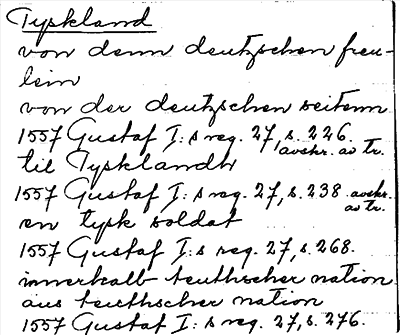 Tyskland
von denn deutzschen freu-
lein
von der deutzschen seitenn
1557 Gustaf I:s reg. 27, s. 226.
avskr. av tr.
till Tysklandh
1557 Gustaf I:s reg. 27, s. 238 avskr.
av tr.
en tysk soldat
1557 Gustaf I:s reg. 27, s. 268.
innerhalb teuthscher nation
aus teuthscher nation
1557 Gustaf I:s reg. 27, s. 276.